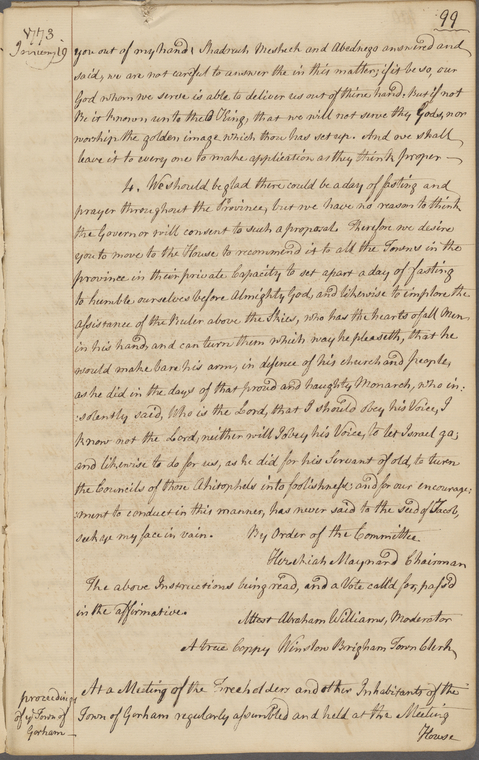 99
1773
January 19
you out of my hand? Shadrach Meshech and Abednego answered and
said, we are not careful to answer the in this matter; if it be so, our
God whom we serve is able to deliver us out of thine hand. But if not
Be it known unto the O King, that we will not serve thy Gods, nor
worship the golden image which thou has set up. And we shall
leave it to every one to make application as they think proper —
4. We should be glad there could be a day of fasting and
prayer throughout the Province, but we have no reason to think
the Governor will consent to such a proposal. Therefore we desire
you to move to the House to recommend it to all the Towns in the
province in their private Capacity to set apart a day of fasting
to humble ourselves before Almighty God, and likewise to implore the
Assistance of the Ruler above the Skies, who has the hearts of all Men,
in his hand, and can turn them which way he pleaseth, that he
would make bare his arm, in defence of his church and people,
as he did in the days of that proud and haughty Monarch, who in:
:solently said, Who is the Lord, that I should obey his Voice, I
know not the Lord, neither will I obey his Voice, to let Israel go;
and likewise to do for us, as he did for his Servant of old, to turn
the Councils of those Ahitophels into foolishness; and for our encourage:
:ment to conduct in this manner, has never said to the seed of Jacob,
seek ye my face in vain. By Order of the Committee
Hezekiah Maynard Chairman
The above Instructions being read, and a Vote calld for, pass'd
in the affirmative.
Attest Abraham Williams, Moderator
A true Coppy Winslow Brigham Town Clerk
proceedings
of ye Town of
Gorham —
At a Meeting of the Freeholders and other Inhabitants of the
Town of Gorham regularly assembled and held at the Meeting
House